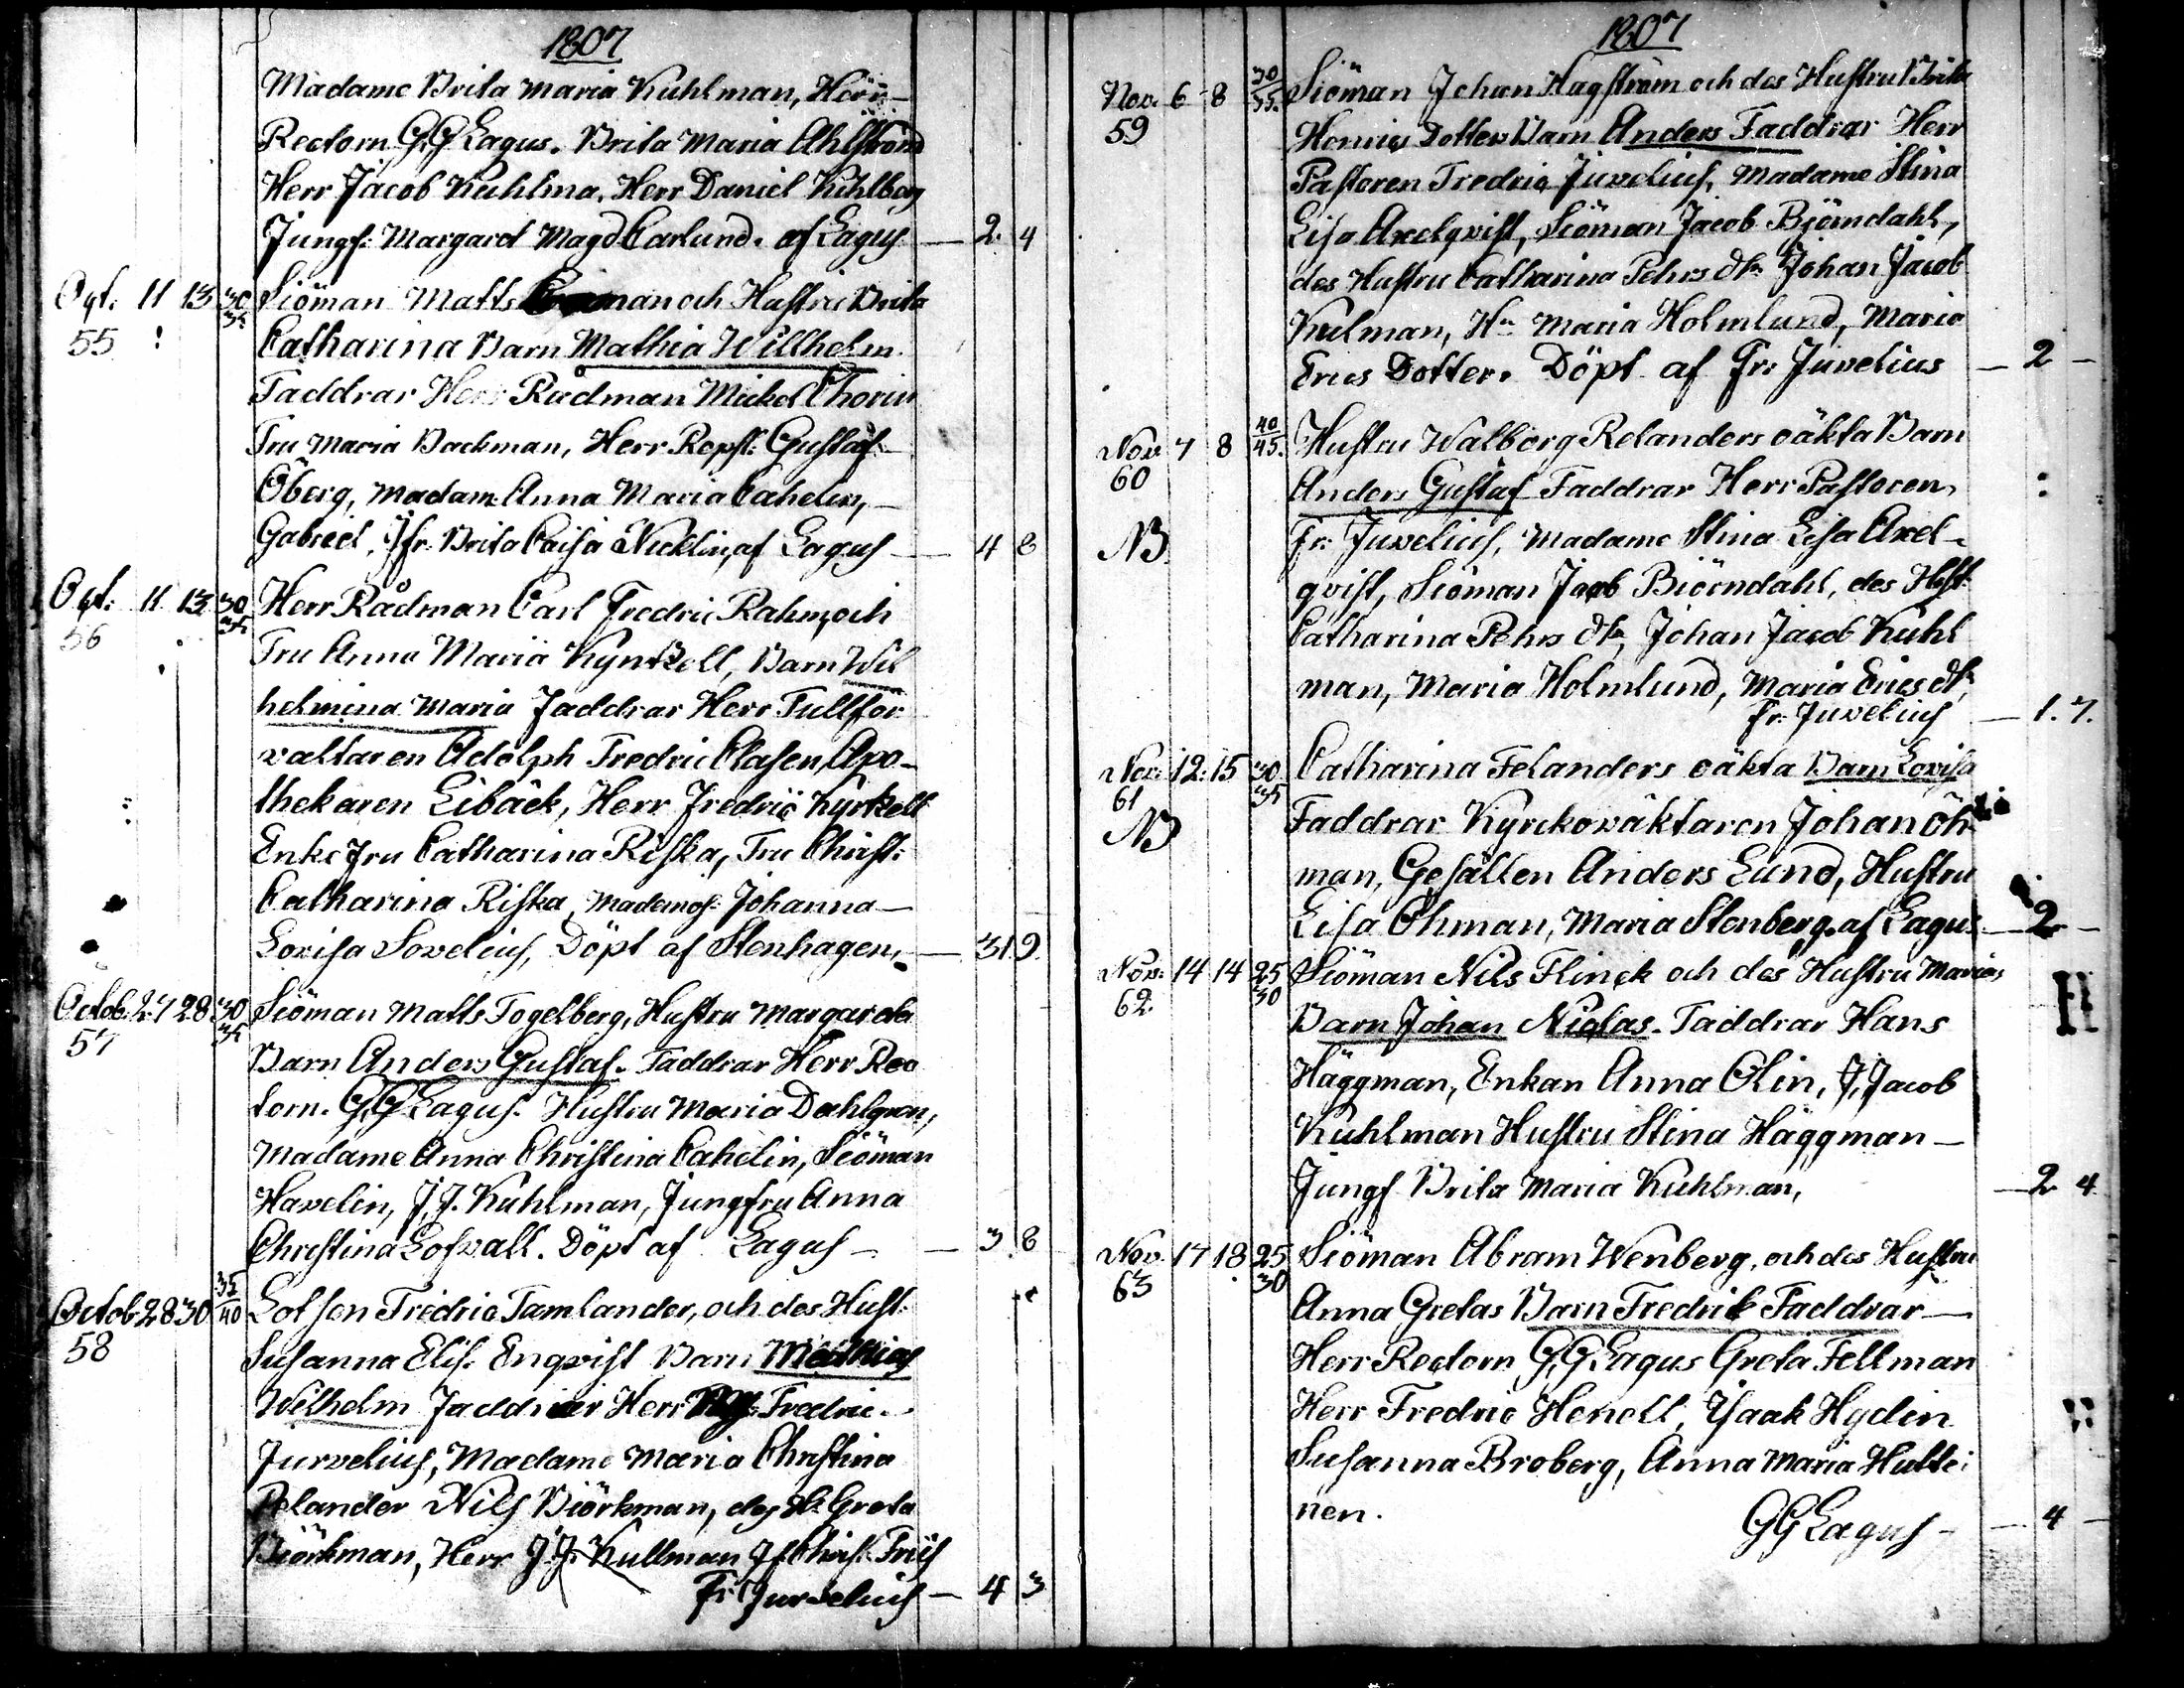 1807
Madame Brita Maria Kuhlman, Herr
Rectorn G,G Lagus. Brita Maria Ahlström
Herr Jacob Kuhlma, Herr Daniel Kihlberg
Jungf: Margaret Magd Carlund. af Lagus — 2. 4
Oct. 11 13 30 35 Siöman Matts och Hustru Brita
55 Catharina Barn Mathia Willhelm
Faddrar Herr Rådman Mickel Chorin
Fru Maria Backman, Herr Ropst: Gustaf
Öberg, Madam Anna Maria Cahelin,
Gabriel, Jfr. Brita Caisa Nicklin, af Lagus — 4 8
Oct: 11 13 30 35 Herr Rådman Carl Fredric Rahm, och
56 Fru Anna Maria Kynkell, Barn Wil
helmina Maria Faddrar Herr Tullfor
valtaren Adolph Fredric Clasen, Apo-
thekaren Eibäck, Herr Fredric Kyrkell
Enke fru Catharina Riska, Fru Christ:
Catharina Riska, Mademos: Johanna
Lovisa Sovelius, Döpt af Stenhagen, — 31. 9.
Octob: 27 28 30 35 Siöman Matts Fogelberg, Hustru Margareta
57 Barn Anders Gustaf. Faddrar Herr Rec
torn. G,G Lagus. Hustru Maria Dahlgren,
Madame Anna Christina Cahelin, Siöman
Havelin, J,J. Kuhlman, Jungfru Anna
Christina Lofvall. Döpt af Lagus — 3. 8
Octob 28 30 35 40 Lotsen Fredric Tamlander, och des Hust:
58 Susanna Elis: Enqvist Barn Mathias
Wilhelm Faddrar Herr Fredric
Juvelius, Madame Maria Christina
Relander Nils Biörkman, des H: Greta
Biörkman, Herr J.J. Kullman Jf Christ: Friis
Fr: Juvelius — 4 3
1807
Nov. 6 8 30 35. Siöman Johan Hagström och des Hustru Brita
59 Henrics Dotters Barn Anders Faddrar Herr
Pastoren Fredric Juvelius, Madame Stina
Lisa Axelqvist, Siöman Jacob Björndahl,
des Hustru Catharina Pehrs dtr Johan Jacob
Kulman, Hu Maria Holmlund, Maria
Erics Dotter. Döpt af Fr: Juvelius — 2 —
Nov. 7 8 40 45. Hustru Walborg Relanders oäkta Barn
60 Anders Gustaf Faddrar Herr Pastoren
NB Fr: Juvelius, Madame Stina Lisa Axel-
qvist, Siöman Jacob Biörndahl, des Hust:
Catharina Pehrs dtr, Johan Jacob Kuhl
man, Maria Holmlund, Maria Erics dtr
Fr: Juvelius — 1. 7.
Nov: 12: 15 30 35 Catharina Felanders oäkta Barn Lovisa
61 Faddrar Kyrckoväktaren Johan Öh
NB man, Gesällen Anders Lund, Hustru
Lisa Öhman, Maria Stenberg. af Lagus — 2 —
Nov: 14 14 25 30 Siöman Nils Flinck och des Hustru Marias
62. Barn Johan Niclas. Faddrar Hans
Häggman, Enkan Anna Olin, J, Jacob
Kuhlman Hustru Stina Häggman —
Jungf Brita Maria Kuhlman, — 2 4
Nov. 17 18 25 30 Siöman Abram Wenberg, och des Hustru
63 Anna Gretas Barn Fredrik Faddrar —
Herr Rectorn G,G Lagus Greta Fellman
Herr Fredric Henell, Isaak Hydin
Susanna Broberg, Anna Maria Hutti:
nen.
GG Lagus — 4 —